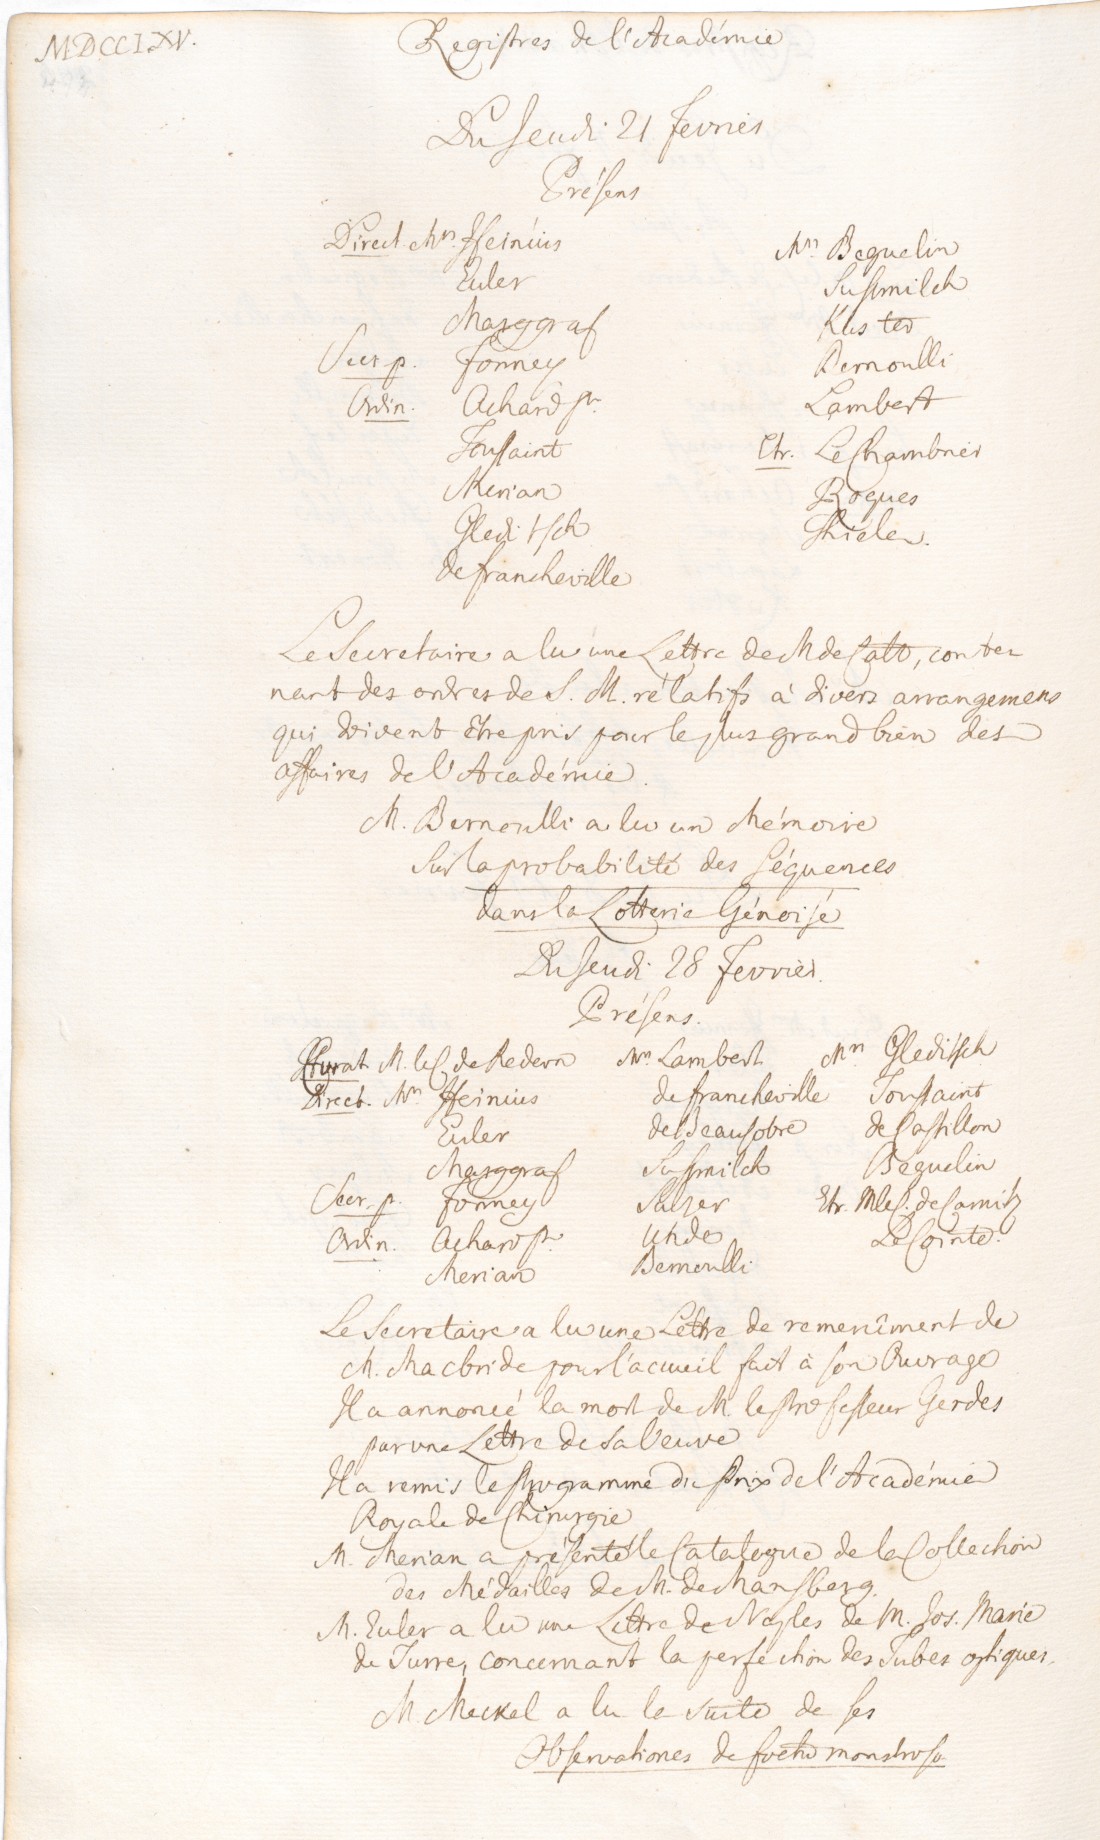 MDCCLXV.
Registres de l'Académie
Du Jeudi 21 Fevrier
Présens
Direct. Mrs. Heinius
Euler
Marggraf
Secr. p. Formey
Ordin. Achard pr.
Toussaint
Merian
Gleditsch
de Francheville
Mrs. Beguelin
Sussmilch
Kuster
Bernoulli
Lambert
Etr. Le Chambrier
Roques
Thiele.
Le Secretaire a lu une Lettre de M. de Catt, conte-
nant des ordres de S. M. rélatifs à divers arrangemens
qui doivent etre pris pour le plus grand bien des
affaires de l'Académie.
M. Bernoulli a lu un Mémoire
Sur la probabilité des Séquences
dans la Lotterie Génoise
Du Jeudi 28 Fevrier.
Présens.
M. le C. de Redern
Direct. Mrs. Heinius
Euler
Marggraf
Secr. p. Formey
Ordin. Achard pr.
Merian
Mrs. Lambert
de Francheville
de Beausobre
Sussmilch
Sulzer
Uhde
Bernoulli
Mrs. Gleditsch
Toussaint
de Castillon
Beguelin
Etr. M le C. de
Le Cointe.
Le Secretaire a lu une Lettre de remercîment de
M. Macbride pour l'acueil fait à son Ouvrage
Il a annoncé la mort de M. le Professeur Gerdes
par une Lettre de sa Veuve
Il a remis le Programme du Prix de l'Académie
Royale de Chirurgie
M. Merian a présenté le Catalogue de la Collection
des Médailles de M. de
M. Euler a lu une Lettre de Naples de M. Jos. Marie
de Turre, concernant la perfection des Tubes optiques.
M. Meckel a lu la suite de ses
Observationes de foetu monstroso